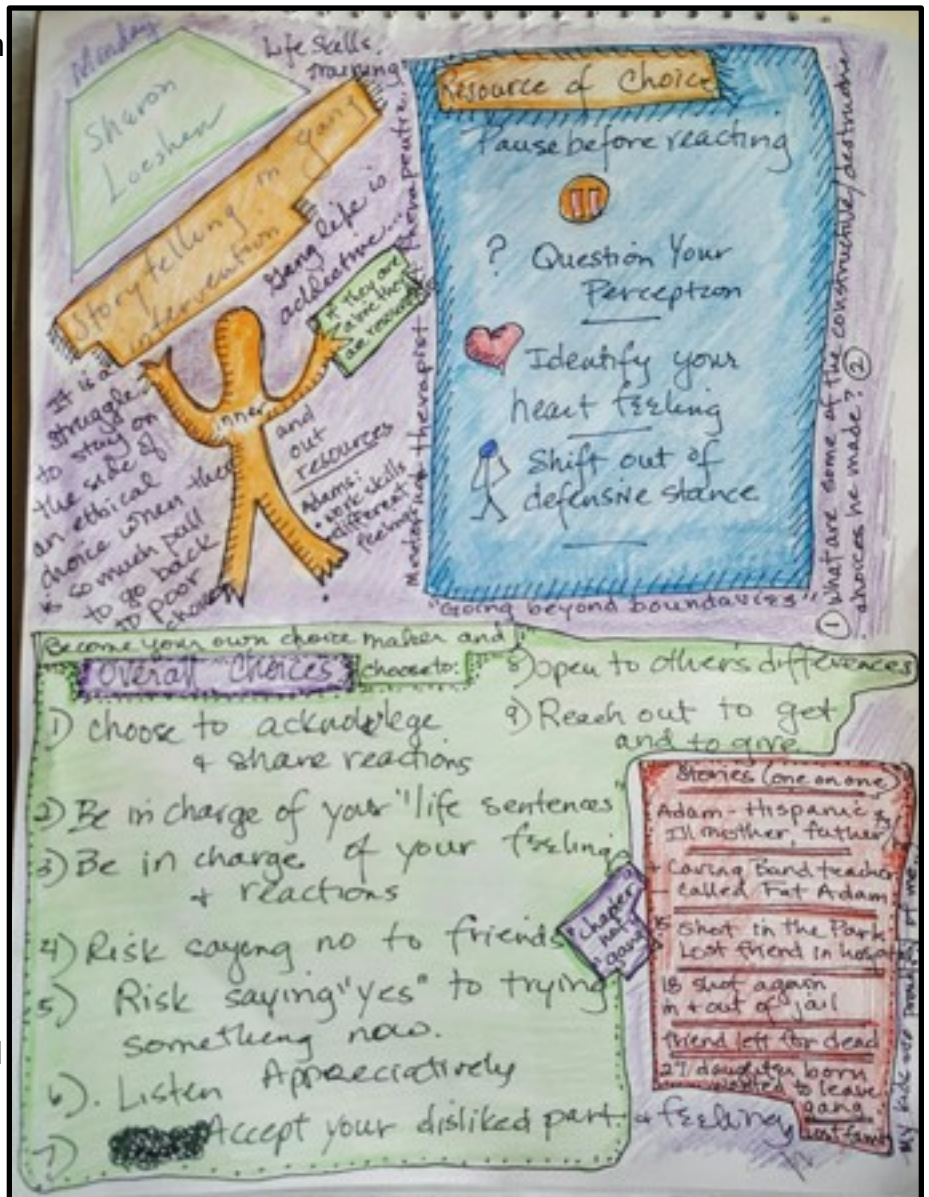 Monday
Sharon
Loeshen
Life Skills
Training
Storytelling in gang
intervention
Gang life is
addictive...
If they are
alive they
are resourceful
It is a
struggle
to stay on
the side of
an ethical
choice when there
is so much pull
to go back
to poor
choices
inner
and
out
resources
Adams:
work skills
different
feelings
therapist
Resource of Choice
Pause before reacting
? Question Your
Perception
Identify your
heart feeling
Shift out of
defensive stance
"Going beyond boundaries"
① What are some of the constructive/destructive
choices he made? ②
Become your own choice maker and
Overall Choices choose to:
1) choose to acknowlege
& share reactions
2) Be in charge of your "life sentences"
3) Be in charge of your feeling
& reactions
4) Risk saying no to friends
5) Risk saying "yes" to trying
something now.
6). Listen Appreciatively
7) Accept your disliked part & feeling
8) Open to other's differences
9) Reach out to get
and to give
"chapter
not
gang"
Stories (one on one)
Adam - Hispanic
Ill mother, father
+ Caring Band teacher
- called Fat Adam
15 shot in the Park
Lost friend in hospital
18 shot again
in & out of jail
friend left for dead
27/daughter born
wanted to leave
gang
Lost family
My kids are proud of me...